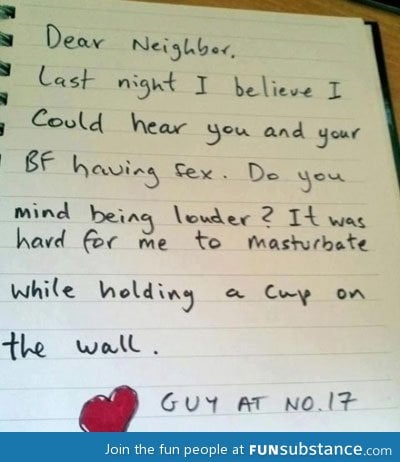 Dear Neighbor.
Last night I believe I
Could hear you and your
BF having sex. Do you
mind being louder? It was
hard for me to masturbate
while holding a cup on
the wall.
GUY AT NO.17
Join the fun people at FUNsubstance.com